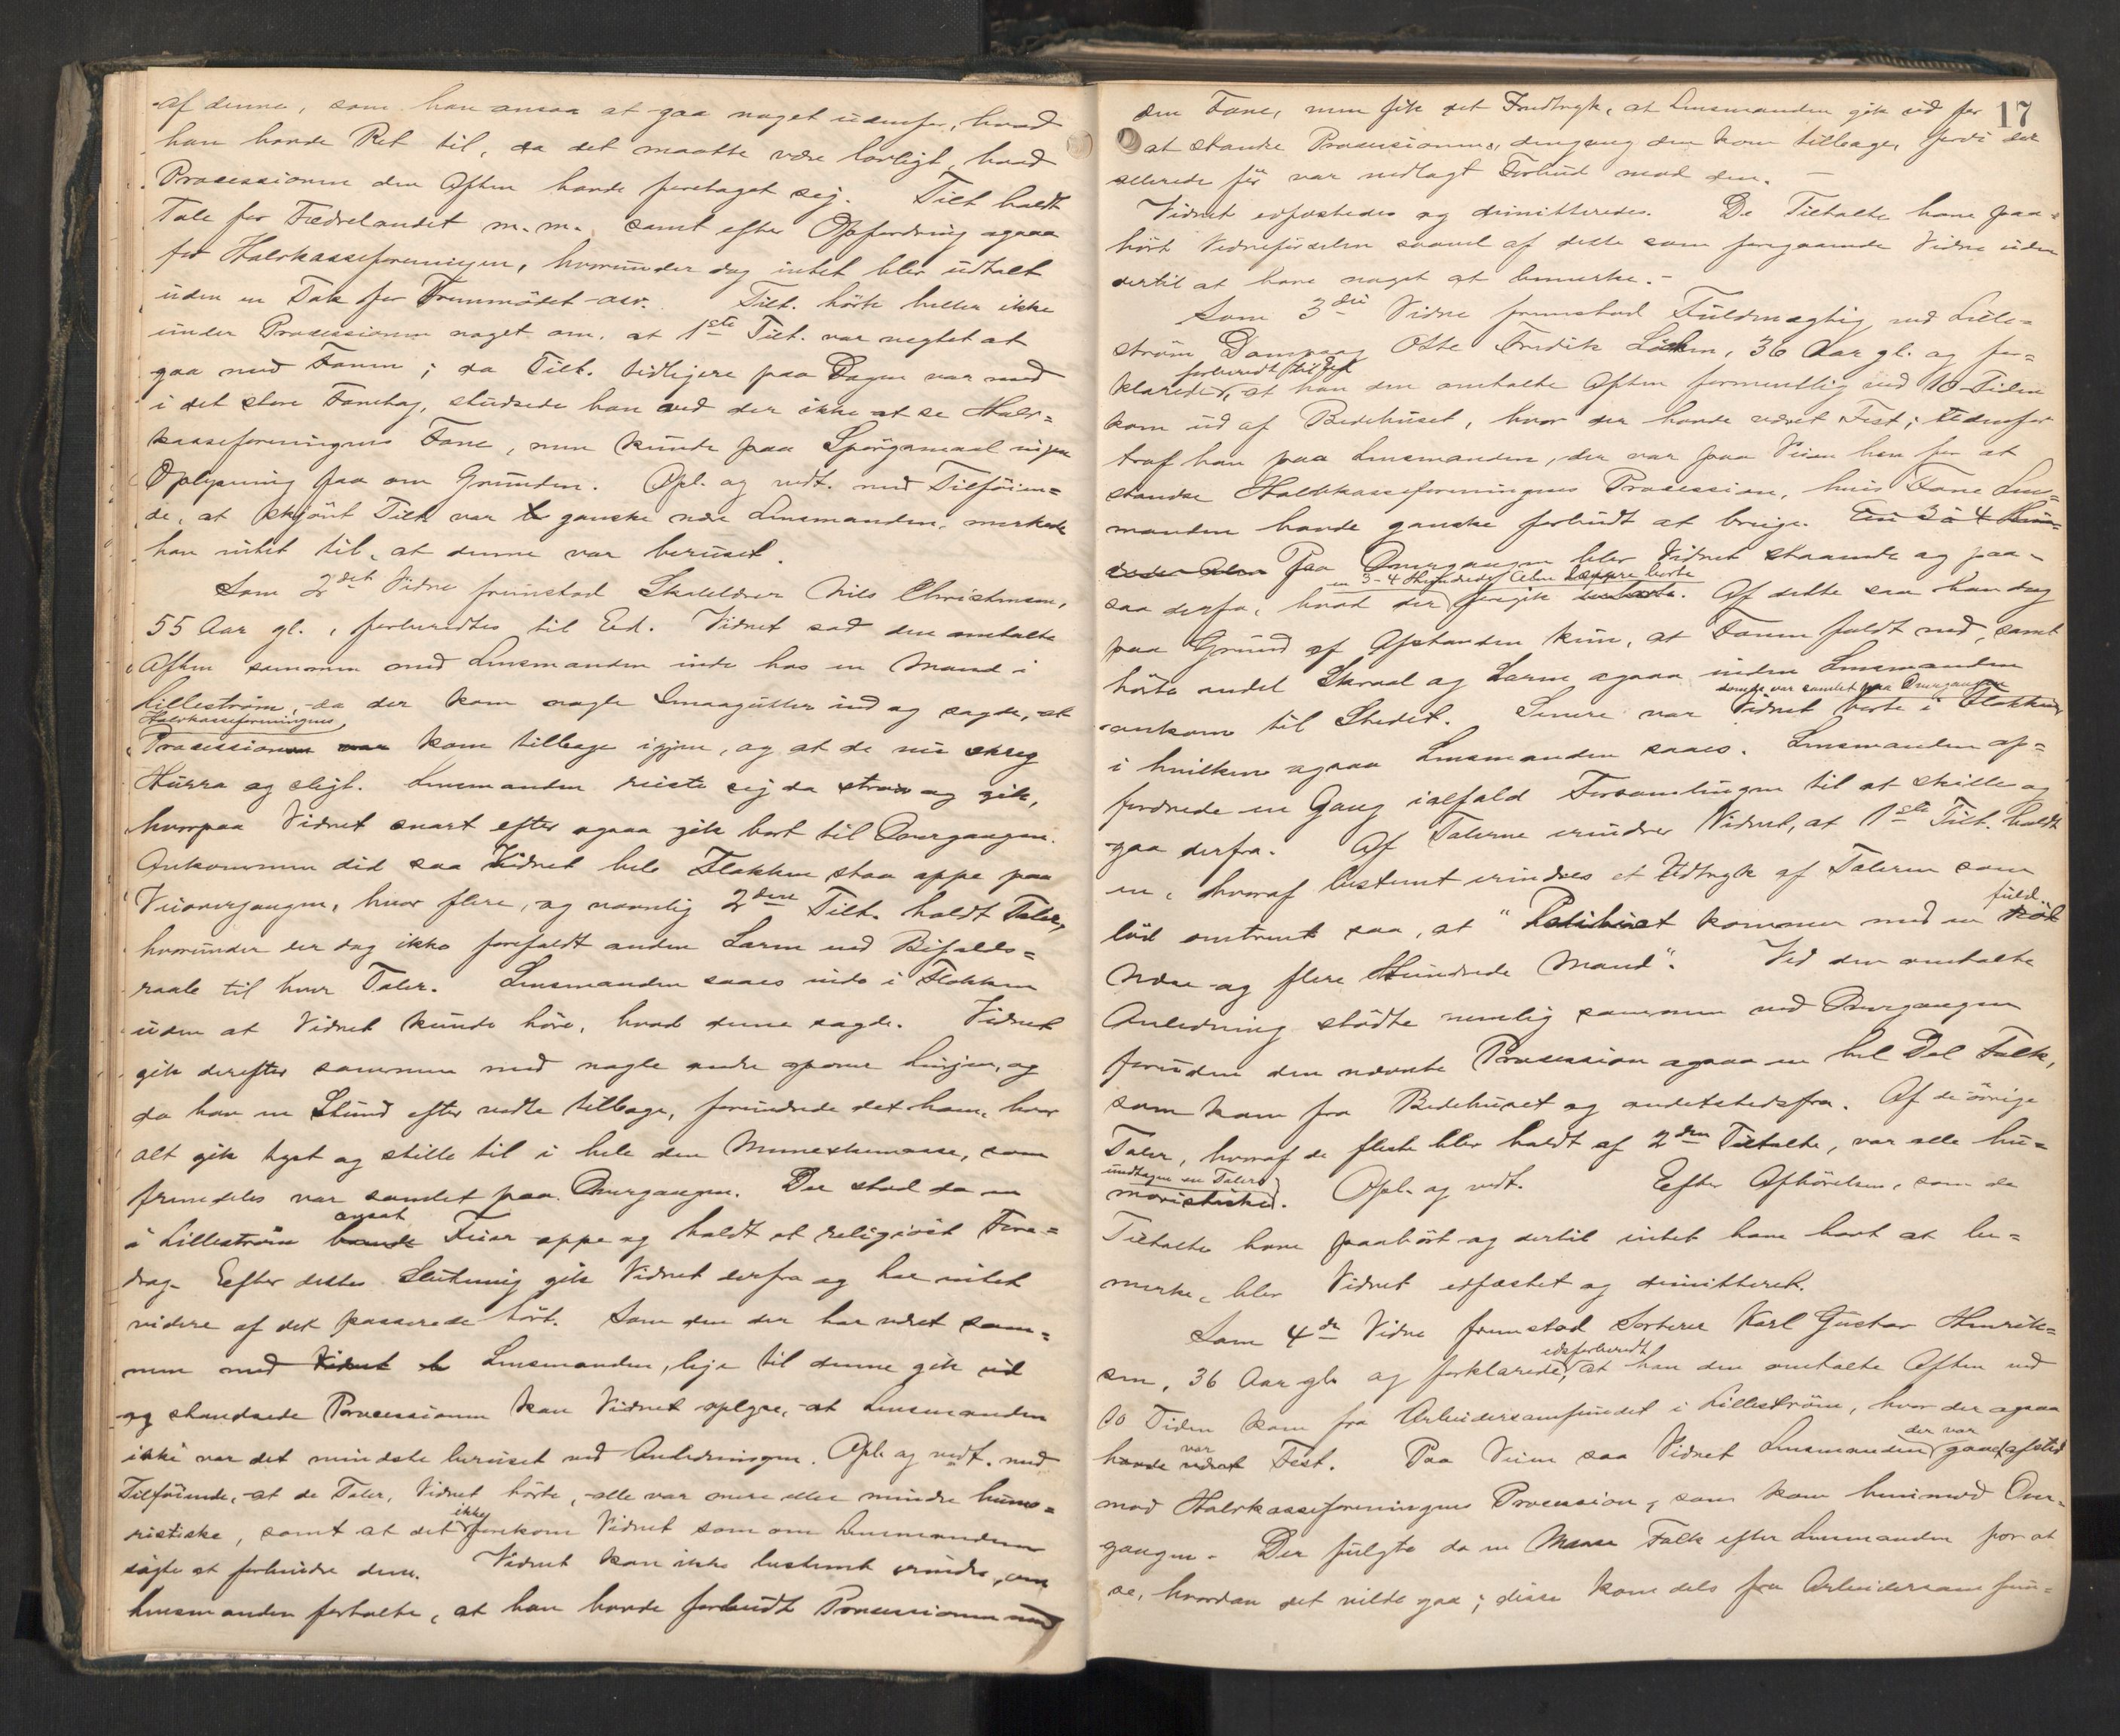 af denne, som han ansaa at gaa noget udenfor, hvad
han havde Ret til, da det maatte være lovligt, hvad
Processionen den Aften havde foretaget sig. Tilt. holdt
Tale for Fædrelandet m.m. samt efter Opfordring ogsaa
for Halvkasseforeningen, hvorunder dog intet blev udtalt
uden en Tak for Fremmødet osv. Tilt. hørte heller ikke
under Processionen noget om, at 1ste Tilt. var negtet at
gaa med Fanen; da Tilt. tidligere paa Dagen var med
i det store Fanetog, studsede han ved der ikke at se Halv-
kasseforeningens Fane, men kunde paa Spørgsmaal ingen
Oplysning faa om Grunden. Opl. og vedt. med Tilføien-
de, at skjønt Tilt. var ganske nær Lensmanden, merkede
han intet til, at denne var beruset.
Som 2det Vidne fremstod Skræddder Nils Christensen,
55 Aar gl., forberedtes til Ed. Vidnet sad den omtalte
Aften sammen med Lensmanden inde hos en Mand i
Lillestrøm, da der kom nogle Smaagutter ind og sagde, at
Halvkasseforeningens
Processionen var kom tilbage igjen, og at de nu skreg
Hurra og sligt. Lensmanden reiste sig da strax og gik,
hvorpaa Vidnet snart efter ogsaa gik bort til Overgangen.
Ankommen did saa Vidnet hele Flokken staa oppe paa
Veiovergangen, hvor flere, og navnlig 2den Tilt. holdt Taler,
hvorunder der dog ikke forefaldt anden Larm end Bifalds-
raab til hver Taler. Lensmanden saaes inde i Flokken
uden at Vidnet kunde høre, hvad denne sagde. Vidnet
gik derefter sammen med nogle andre opover Linjen, og
da han en Stund efter vedte tilbage, forundrede det ham, hvor
alt gik tyst og stille til i hele den Menneskemasse, som
fremdeles var samlet paa Overgangen. Der stod da en
i Lillestrøm ansat Feier oppe og holdt et religiøst Fore-
drag. Efter dettes Slutning gik Vidnet derfra og har intet
videre af det passerede hørt. Som den der har været sam-
men med Vidnet Lensmanden, lige til denne gik ud
og standsede Processionen kan Vidnet oplyse, at Lensmanden
ikke var det mindste beruset ved Anledningen. Opl. og vedt. med
Tilføiende, at de Taler, Vidnet hørte, alle var mere eller mindre humo-
ristiske, samt at det ikke forekom Vidnet som om Lensmanden
søgte at forhindre dem. Vidnet kan ikke bestemt erindre, om
Lensmanden fortalte, at han havde forbudt Processionen med
17
den Fane, men fik det Indtryk, at Lensmanden gik ud for
at standse Processionen, dengang den kom tilbage, fordi der
allerede før var nedlagt Forbud mod den. –
Vidnet edfæstedes og dimitteredes. De Tiltalte have paa-
hørt Vidneførselen saavel af dette som foregaaende Vidne uden
dertil at have noget at bemerke. –
Som 3die Vidne fremstod Fuldmægtig ved Lille-
strøm Dampsag Otto Fredrik Löchen, 36 Aar gl. og for-
forberedt til Ed
klarede, at han den omtalte Aften formentlig ved 10-Tiden
kom ud af Bedehuset, hvor der havde været Fest; Udenfor
traf han paa Lensmanden, der var paa Veien hen for at
standse Halvkasseforeningens Procession, hvis Fane Lens-
manden havde ganske forbudt at bruge. En 3 à 4 Hun-
drede Alen Paa Overgangen blev Vidnet staaende og paa-
en 3-4 Hundrede Alen længere borte
saa derfra, hvad der foregik. Af dette saa han dog
paa Grund af Afstanden kun, at Fanen faldt ned, samt
hørte endel Skraal og Larm ogsaa inden Lensmanden
som var samlet paa Overgangen
ankom til Stedet. Senere var Vidnet borte i Flokken
i hvilken ogsaa Lensmanden saaes. Lensmanden op-
fordrede en Gang ialfald Forsamlingen til at skille og
gaa derfra. Af Talerne erindrer Vidnet, at 1ste Tilt. holdt
en, hvoraf bestemt erindres et Udtryk af Taleren som
fuld
lød omtrent saa, at "Politiet kommer med en rød
Næse og flere Hundrede Mand". Ved den omtalte
Anledning stødte nemlig sammen ved Overgangen
foruden den nævnte Procession ogsaa en hel Del Folk,
som kom fra Bedehuset og andetstedsfra. Af de øvrige
Taler, hvoraf de fleste blev holdt af 2den Tiltalte, var alle hu-
undtagen en Taler
moristiske. Opl. og vedt. Efter Afhørelsen, som de
Tiltalte have paahørt og dertil intet have havt at be-
merke, blev Vidnet edfæstet og dimitteret.
Som 4de Vidne fremstod Sorterer Karl Gustav Henrik-
edsforberedt
sen, 36 Aar gl. og forklarede, at han den omtalte Aften ved
10 Tiden kom fra Arbeidersamfundet i Lillestrøm, hvor der ogsaa
var der var
havde været Fest. Paa Veien saa Vidnet Lensmanden gaa afsted
mod Halvkasseforeningens Procession, som kom henimod Over-
gangen. Der fulgte da en Masse Folk efter Lensmanden for at
se, hvordan det vilde gaa; disse kom dels fra Arbeidersamfun-